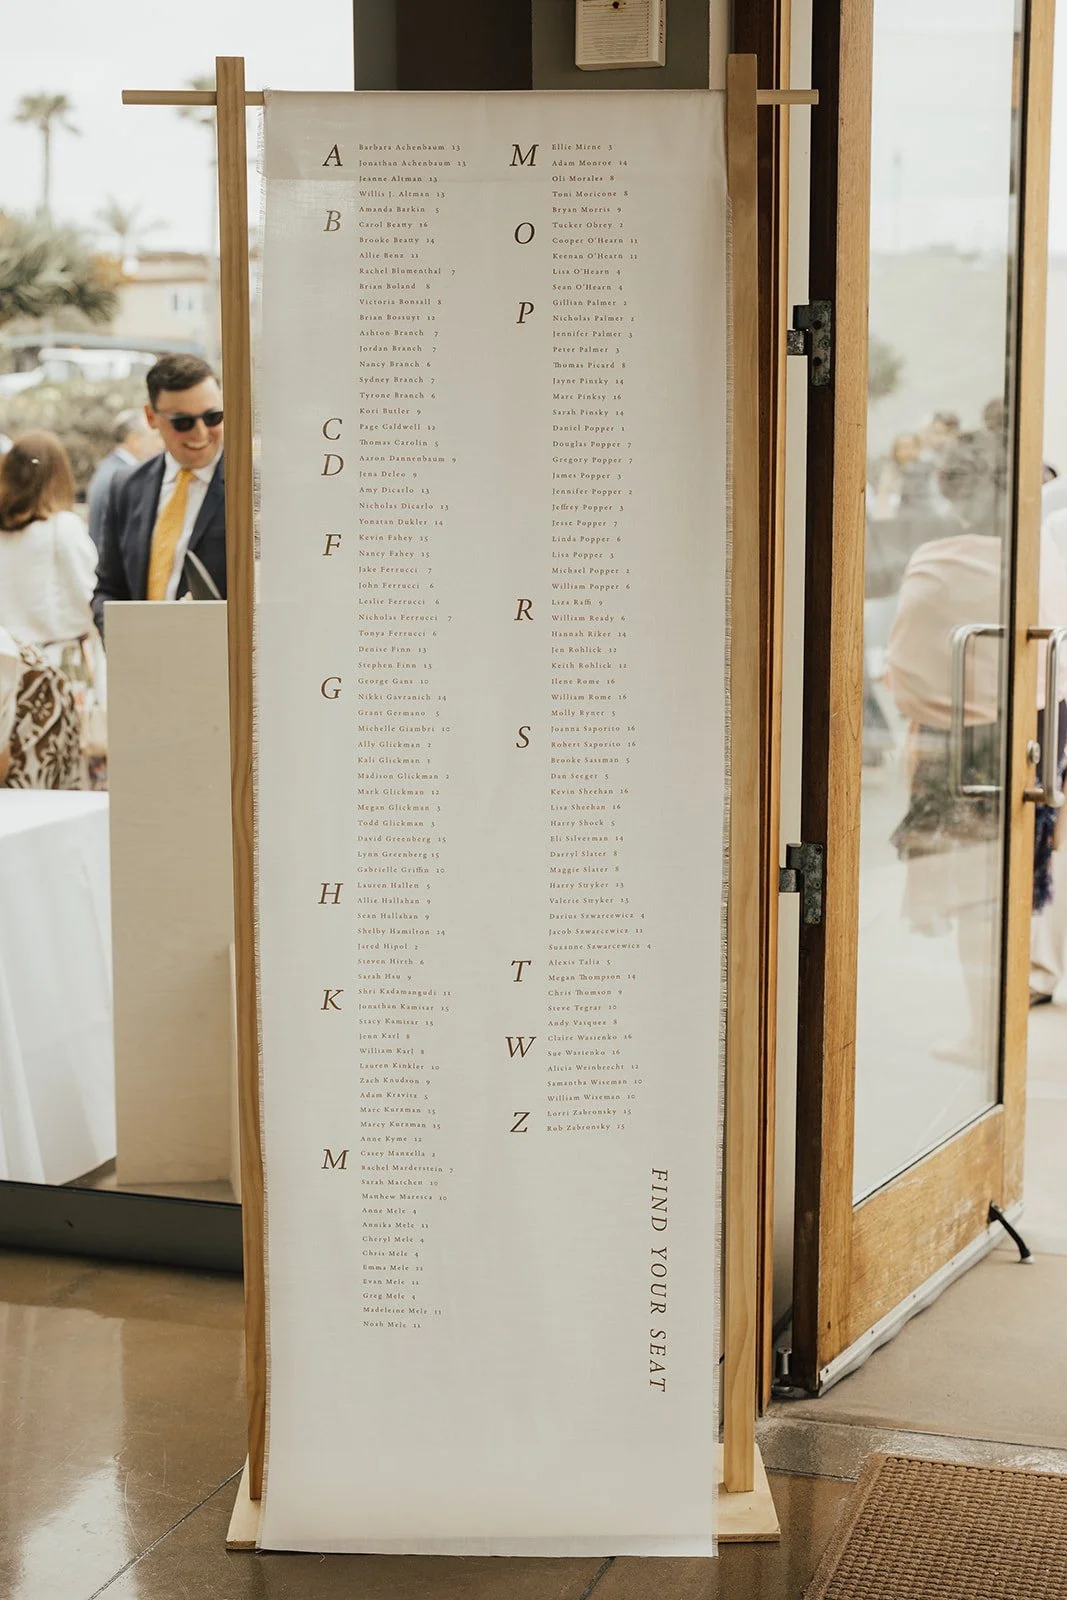 A
Barbara Achenbaum 13
Jonathan Achenbaum 13
Jeanne Altman 13
Willis J. Altman 13
B
Amanda Barkin 5
Carol Beatty 16
Brooke Beatty 14
Allie Benz 11
Rachel Blumenthal 7
Brian Boland 8
Victoria Bonsall 8
Brian Bossuyt 12
Ashton Branch 7
Jordan Branch 7
Nancy Branch 6
Sydney Branch 7
Tyrone Branch 6
Kori Butler 9
C
Page Caldwell 12
Thomas Carolin 5
D
Aaron Dannenbaum 9
Jena Deleo 9
Amy Dicarlo 13
Nicholas Dicarlo 13
Yonatan Dukler 14
F
Kevin Fahey 15
Nancy Fahey 15
Jake Ferrucci 7
John Ferrucci 6
Leslie Ferrucci 6
Nicholas Ferrucci 7
Tonya Ferrucci 6
Denise Finn 13
Stephen Finn 13
G
George Gans 10
Nikki Gavranich 14
Grant Germano 5
Michelle Giambri 10
Ally Glickman 2
Kali Glickman 1
Madison Glickman 2
Mark Glickman 12
Megan Glickman 3
Todd Glickman 3
David Greenberg 15
Lynn Greenberg 15
Gabrielle Griffin 10
H
Lauren Hallen 5
Allie Hallahan 9
Sean Hallahan 9
Shelby Hamilton 14
Jared Hipol 2
Steven Hirth 6
Sarah Hsu 9
K
Shri Kadamangudi 11
Jonathan Kamisar 15
Stacy Kamisar 15
Jenn Karl 8
William Karl 8
Lauren Kinkler 10
Zach Knudson 9
Adam Kravitz 5
Marc Kurzman 15
Marcy Kurzman 15
Anne Kyme 12
M
Casey Manzella 2
Rachel Marderstein 7
Sarah Matchen 10
Matthew Maresca 10
Anne Mele 4
Annika Mele 11
Cheryl Mele 4
Chris Mele 4
Emma Mele 11
Evan Mele 11
Greg Mele 4
Madeleine Mele 11
Noah Mele 11
M
Ellie Mirne 3
Adam Monroe 14
Oli Morales 8
Toni Moricone 8
Bryan Morris 9
O
Tucker Obrey 2
Cooper O'Hearn 11
Keenan O'Hearn 11
Lisa O'Hearn 4
Sean O'Hearn 4
P
Gillian Palmer 2
Nicholas Palmer 2
Jennifer Palmer 3
Peter Palmer 3
Thomas Picard 8
Jayne Pinsky 14
Marc Pinksy 16
Sarah Pinsky 14
Daniel Popper 1
Douglas Popper 7
Gregory Popper 7
James Popper 3
Jennifer Popper 2
Jeffrey Popper 3
Jesse Popper 7
Linda Popper 6
Lisa Popper 3
Michael Popper 2
William Popper 6
R
Liza Raffi 9
William Ready 6
Hannah Riker 14
Jen Rohlick 12
Keith Rohlick 12
Ilene Rome 16
William Rome 16
Molly Ryner 5
S
Joanna Saporito 16
Robert Saporito 16
Brooke Sassman 5
Dan Seeger 5
Kevin Sheehan 16
Lisa Sheehan 16
Harry Shock 5
Eli Silverman 14
Darryl Slater 8
Maggie Slater 8
Harry Stryker 13
Valerie Stryker 13
Darius Szwarcewicz 4
Jacob Szwarcewicz 11
Suzanne Szwarcewicz 4
T
Alexis Talia 5
Megan Thompson 14
Chris Thomson 9
Steve Tegrar 10
Andy Vasquez 8
W
Claire Wasienko 16
Sue Wasienko 16
Alicia Weinbrecht 12
Samantha Wiseman 10
William Wiseman 10
Z
Lorri Zabronsky 15
Rob Zabronsky 15
FIND YOUR SEAT